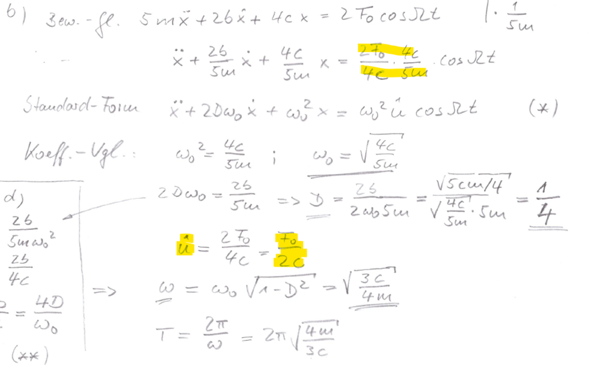 b) Bew.-gl. 5mẍ + 2bẋ + 4cx = 2F₀cosΩt |·1/5m
ẍ + 2b/5m ẋ + 4c/5m x = 2F₀/4c · 4c/5m · cosΩt
Standard-Form ẍ + 2Dω₀ẋ + ω₀²x = ω₀²û cosΩt (*)
Koeff.-Vgl.: ω₀² = 4c/5m ; ω₀ = √(4c/5m)
2Dω₀ = 2b/5m => D = 2b/2ω₀5m = √(5cm/4)/(√(4c/5m)·5m) = 1/4
û = 2F₀/4c = F₀/2c
=> ω = ω₀√(1-D²) = √(3c/4m)
T = 2π/ω = 2π√(4m/3c)
d)
2b/5mω₀²
2b/4c
= 4D/ω₀
(**)